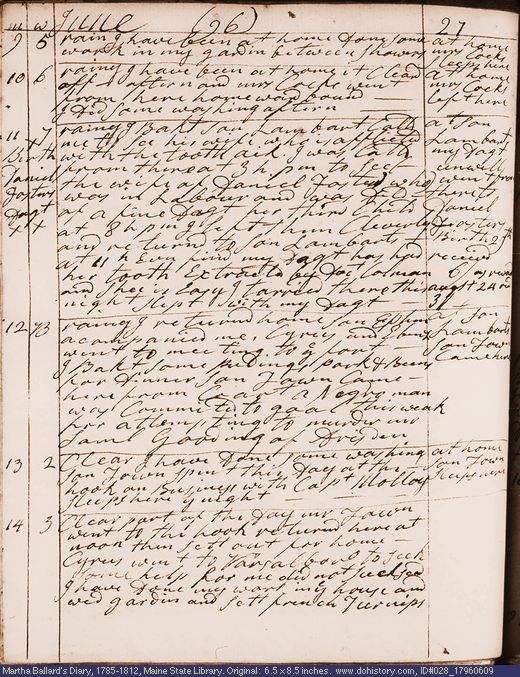 m w June (96) 27
9 5 rain I have been at home Done some at home
work in my gardin between showers mrs Cocks
Sleeps here
10 6 rainy I have been at home it Cleard at home
off afternn and mrs Cocks went mrs Cocks
from here home ward bound left here
I Did some washing aftern
11 7 rainy I Bakt Son Lambart Calld at Son
Birth me to see his wife who is afflicted Lambarts
with the tooth ack I was Calld my Dagt
Daniel from there a 3 h pm to see unwell
Fosters the wife of Daniel Foster who went from
Dagt was in Labour and was Delivd there to
X X of a fine Dagt her third Child Daniel
at 8 h pm I left them Cleverly Fosters
and returned to Son Lambarts Birth 27th
at 11 h Even find my Dagt has had received
her tooth Extracted by Doct Colman 6/
and shee is Easy I tarried there this august 24
night slept with my Dagt
12 rainy I returned home Son Ephm at Son
acompanied me, Cyrus and Ephm Lambarts
went to meeting to ye fort Son Town
I Bakt some Pudings Pork & Beens Came here
for Dinner Son Town Came
here from a Negro man
was Committed to goal this weak
for attempting to murder mr
Saml Gooding of Dresden
13 2 Clear I have Done some washing at home
Son Town spent this Day at the Son Town
hook on Business with Capt Molloy sleeps here
sleeps here ys night
14 3 Clear part of the Day mr Town
went to the hook returned here at
noon then sett out for home
Cyrus went to Varsalboro to seek
some help for me did not sucseed
I have Done my work in my house and
wed gardin and sett french Turnips
Martha Ballard's Diary, 1785-1812, Maine State Library. Original: 6.5 x 8.5 inches. www.dohistory.com, ID#028_17960609